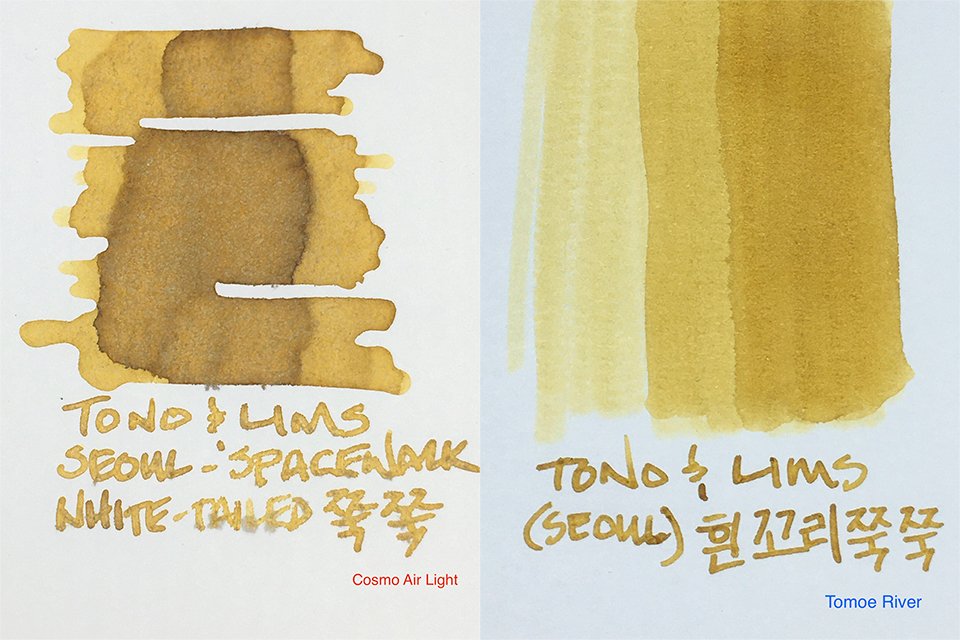 TONO & LIMS
SEOUL - 'SPACEWALK
WHITE-TAILED 쭉쭉
Cosmo Air Light
TONO & LIMS
(SEOUL) 흰꼬리쭉쭉
Tomoe River